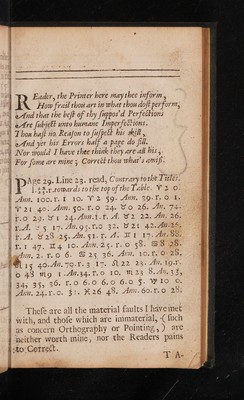 REader, the Printer here may thee inform,
How frail thou art in what thou dost perform,
And that the best of thy suppos'd Perfections
Are subject unto humane Imperfections.
Thou hast no Reason to suspect his skill,
And yet his Errors half a page do fill.
Nor would I have thee think they are all his,
For some are mine; Correct thou what's amiss.
PAge 29. Line 23. read, Contrary to the Titles.
l. 27. r. towards to the top of the Table. ♈ 2 0.
Ann. 100. r. 1 10. ♈ 2 59. Ann. 39. r. 0 1.
♈ 21 40. Ann. 50. r. 0 24. ♉ 0 26. An. 74.
r. 0 29. ♉ 1 24. Ann. 1. r. A. ♉ 2 22. An. 26.
r. A. 5 17. An. 95. r. 0 32. ♉ 21 42. An. 26.
r. A. ♉ 28 25. An. 51. r. A. ♊ 1 17. An. 88.
r. 1 47. ♊ 4 10. Ann. 25. r. 0 58. 8 28.
Ann. 2. r. 0 6. 25 36. Ann. 10. r. 0 28.
15 40. An. 70. r. 3 17. ♌ 22 23. An. 19. r.
0 48 ♍ 9 1 An. 34. r. 0 10. ♏ 23 8. An. 33,
34, 35, 36. r. 0 6. 0 6. 0 6. 0 5. ♈ 10 0.
Ann. 24. r. 0 32. ♓ 26 48. Ann. 60. r. 0 28.
These are all the material faults I have met
with, and those which are immaterial, (such
as concern Orthography or Pointing,) are
neither worth mine, nor the Readers pains
to Correct.
T A-